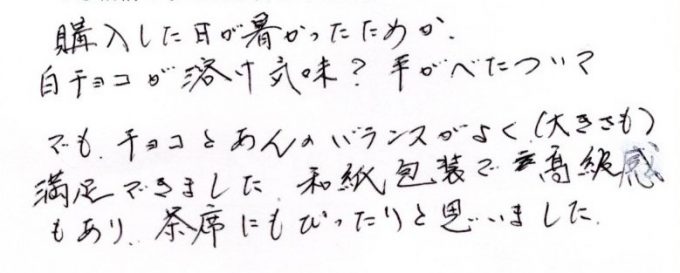 購入した日が暑かったためか、
白チョコが溶け気味？手がべたついて
でも、チョコとあんのバランスがよく、(大きさも)
満足できました。和紙包装で高級感
もあり、茶席にもぴったりと思いました。